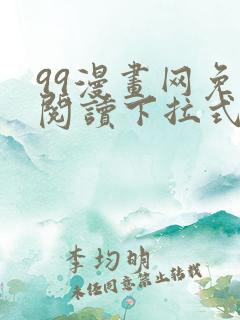 99漫畫网免
閱讀下拉式
李均明
未经同意禁止转载